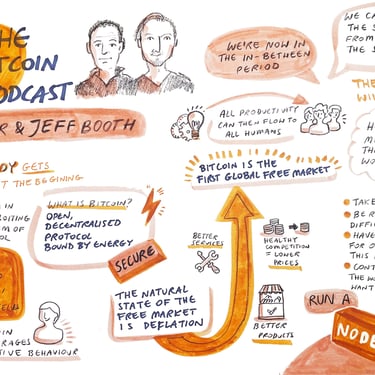 THE
BITCOIN
PODCAST
R & JEFF BOOTH
GETS
T THE BEGINING
WHAT IS BITCOIN?
OPEN,
DECENTRALISED
PROTOCOL
BOUND BY ENERGY
SECURE
THE NATURAL
STATE OF THE
FREE MARKET
IS DEFLATION
WE'RE NOW IN
THE IN-BETWEEN
PERIOD
ALL PRODUCTIVITY
CAN THEN FLOW TO
ALL HUMANS
BITCOIN IS THE
FIRST GLOBAL FREE MARKET
BETTER
SERVICES
HEALTHY
COMPETITION
= LOWER
PRICES
BETTER
PRODUCTS
WE CA
THE S
FROM
THE S
THE
WI
H
M
TH
WO
TAKE
BE R
DIFFIC
HAVE
FOR O
THIS
CONT
THE W
WANT
RUN A
NODE